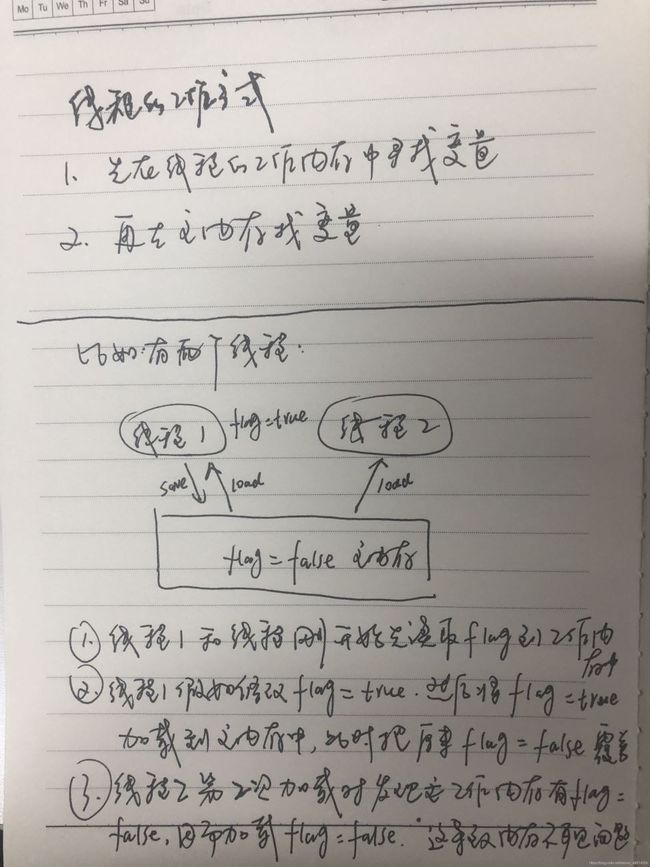 Mo Tu We Th Fr Sa Su
线程的工作方式
1. 先在线程的工作内存中寻找变量
2. 再去主内存找变量
比如:有两个线程:
线程1 flag=true 线程2
save load load
flag=false 主内存
①. 线程1和线程2刚开始先读取flag到工作内
存中
②. 线程1假如修改flag=true. 然后将flag=true
加载到主内存中,此时把原来flag=false覆盖
③. 线程2第2次加载时发现在工作内存有flag=
false,因而加载flag=false. 这导致内存不可见问题